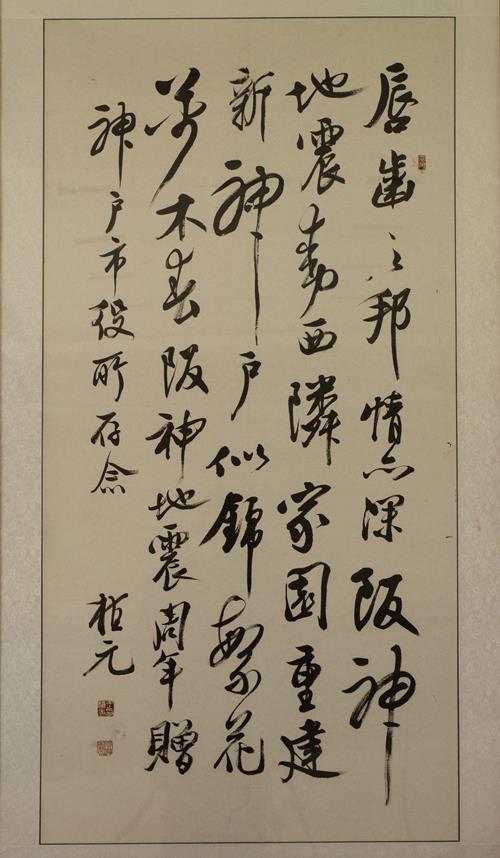 唇齒之邦情亦深阪神
地震動西隣家園重建
新神戶似錦繁花
萬木春阪神地震周年贈
神戶市役所存念
柏元